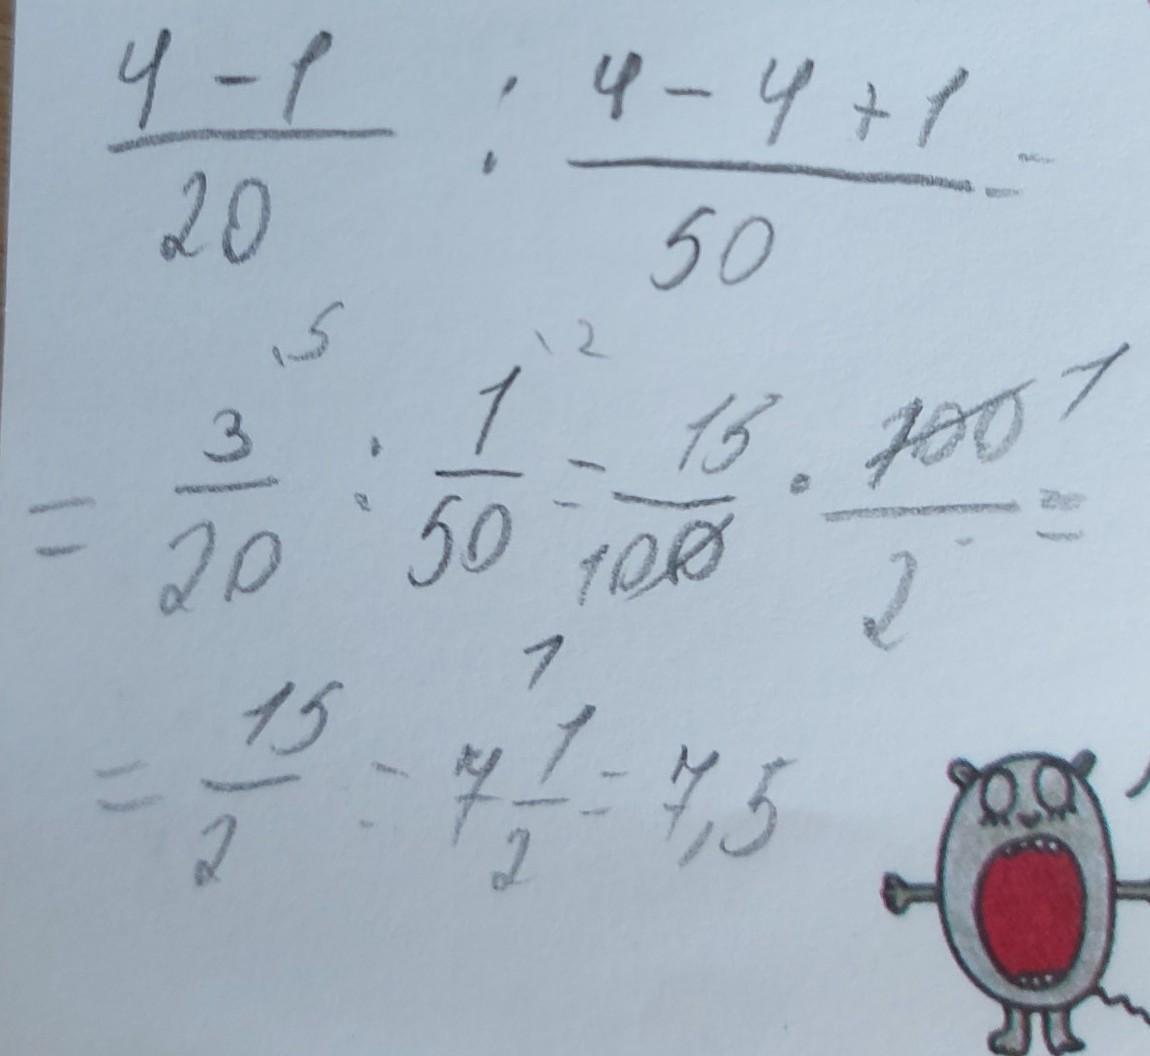 4 - 1 / 20 : 4 - 4 + 1 / 50 =
,5 \2
= 3/20 : 1/50 = 15/100 · 100/2 = 1
1
= 15/2 = 7 1/2 = 7,5